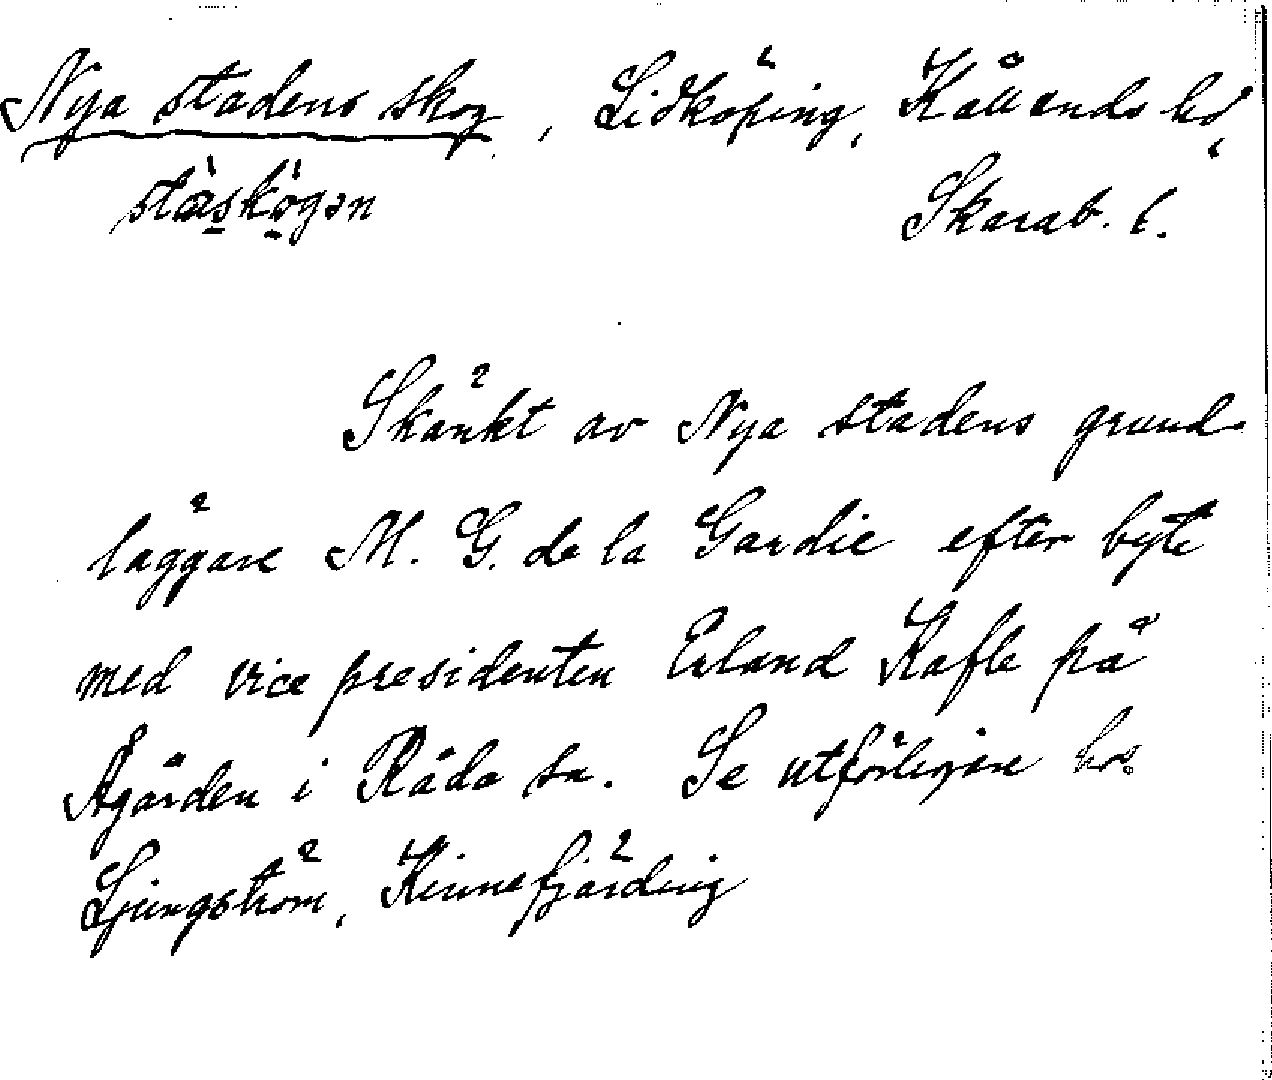 Nya stadens skog, Lidköping, Kållands hd,
stàskògən Skarab. l.
Skänkt av Nya stadens grund-
läggare M. G. de la Gardie efter byte
med vice presidenten Erland Kafle på
Ågården i Råda sn. Se utförligare hos
Ljungström, Kinnefjärding